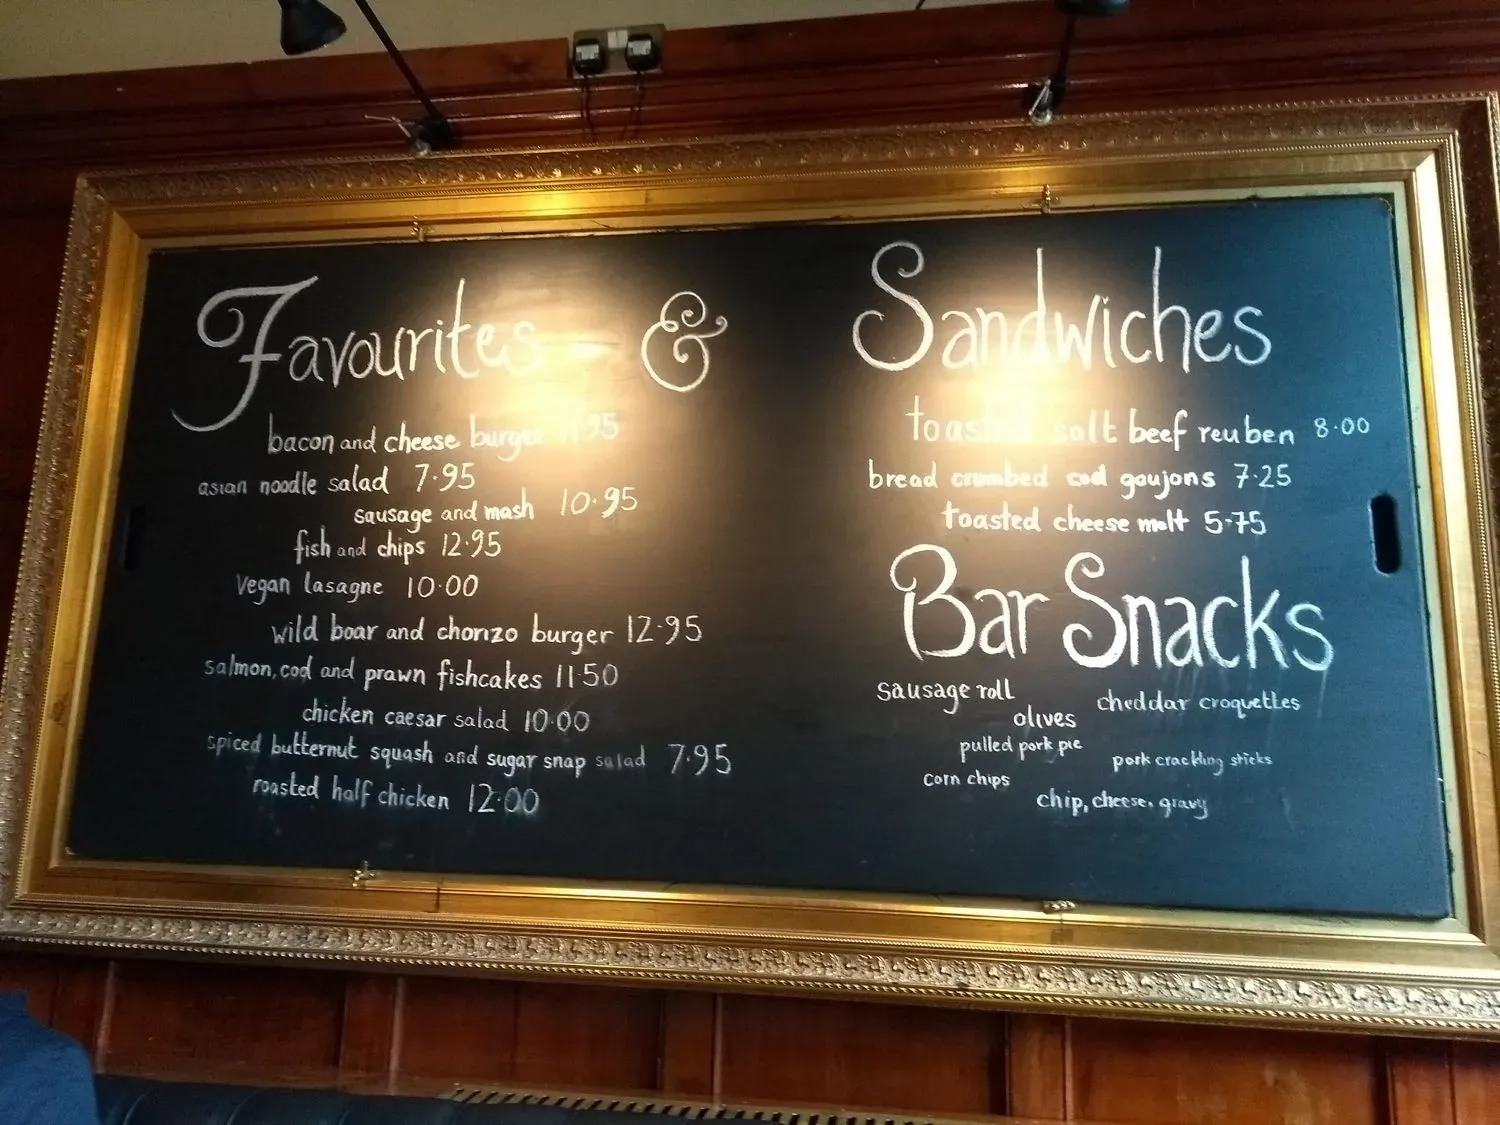 Favourites &
bacon and cheese burger
asian noodle salad 7.95
sausage and mash 10.95
fish and chips 12.95
Vegan lasagne 10.00
wild boar and chorizo burger 12.95
salmon, cod and prawn fishcakes 11.50
chicken caesar salad 10.00
spiced butternut squash and sugar snap salad 7.95
roasted half chicken 12.00
Sandwiches
toasted salt beef reuben 8.00
bread crumbed cod goujons 7.25
toasted cheese melt 5.75
Bar Snacks
sausage roll
cheddar croquettes
olives
pulled pork pie
pork crackling sticks
corn chips
chip, cheese, gravy